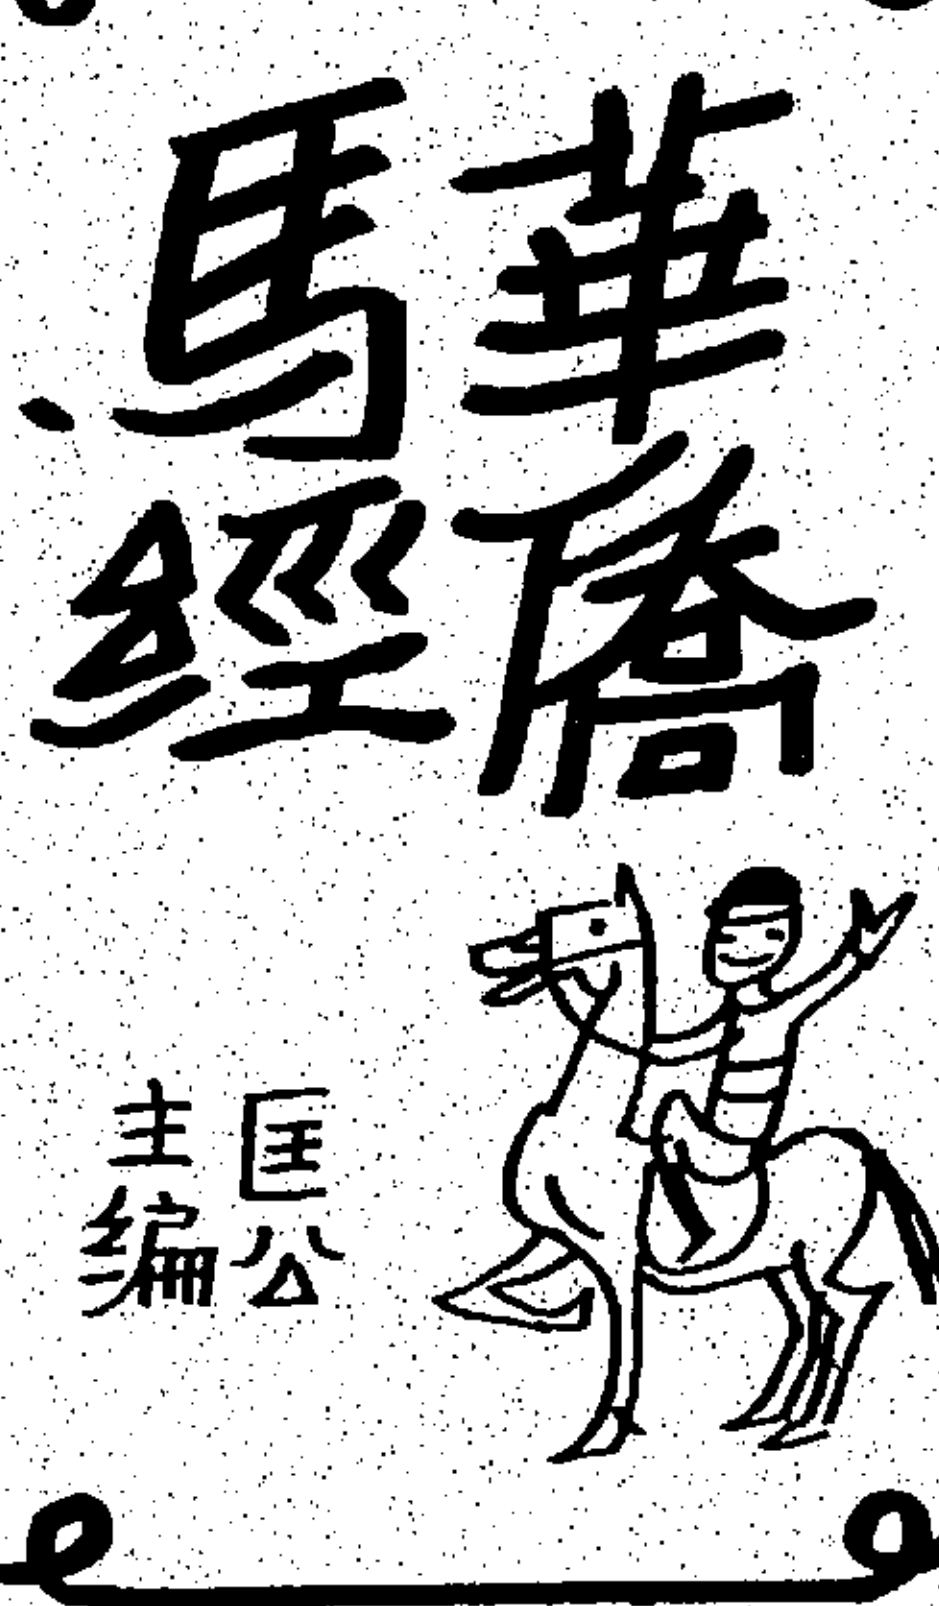 華僑
馬經
匡公
主編